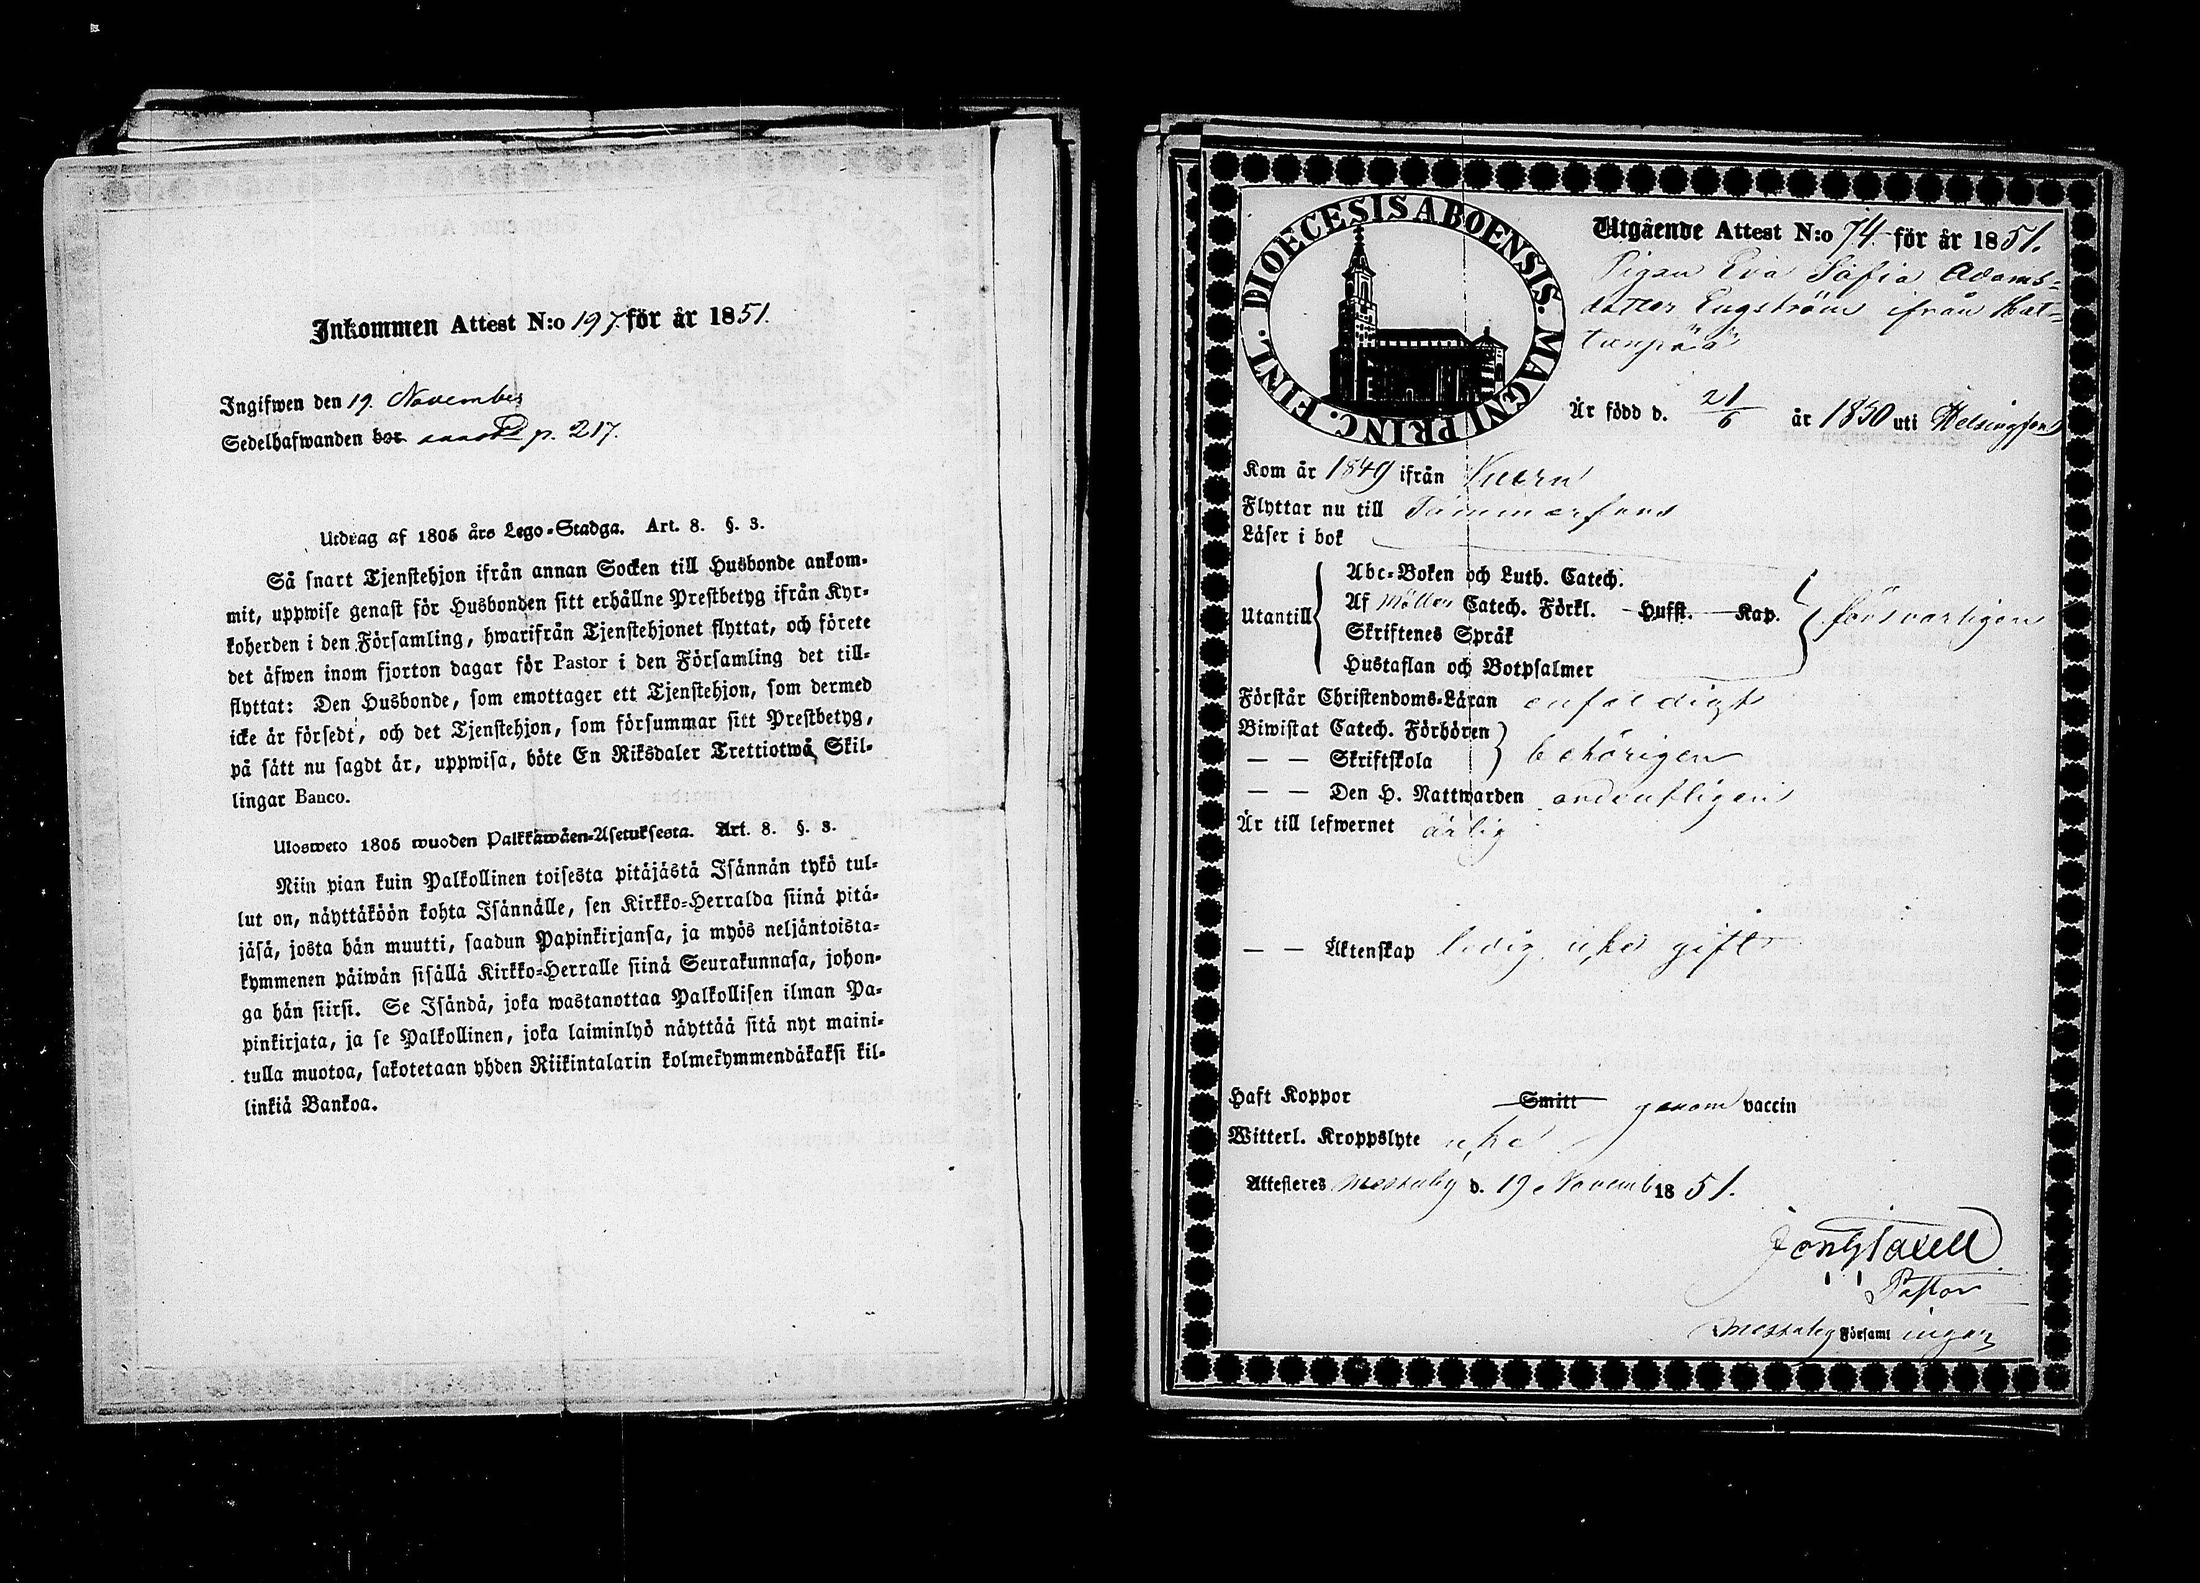 Inkommen Attest N:o 197. för år 1851.
Ingifwen den 19. November
Sedelhafwanden bor p. 217.
Utdrag af 1805 års Lego-Stadga. Art. 8. §. 3.
Så snart Tjenstehjon ifrån annan Socken till Husbonde ankom-
mit, uppwise genast för Husbonden sitt erhållne Prestbetyg ifrån Kyr-
koherden i den Församling, hwarifrån Tjenstehjonet flyttat, och förete
det äfwen inom fjorton dagar för Pastor i den Församling det till-
flyttat: Den Husbonde, som emottager ett Tjenstehjon, som dermed
icke är försedt, och det Tjenstehjon, som försummar sitt Prestbetyg,
på sätt nu sagdt är, uppwisa, böte En Riksdaler Trettiotwå Skil-
lingar Banco.
Ulosweto 1805 wuoden Palkkawäen-Asetuksesta. Art. 8. §. 3.
Niin pian kuin Palkollinen toisesta pitäjästä Isännän tykö tul-
lut on, näyttäköön kohta Isännälle, sen Kirkko-Herralda siinä pitä-
jäsä, josta hän muutti, saadun Papinkirjansa, ja myös neljäntoista-
kymmenen päiwän sisällä Kirkko-Herralle siinä Seurakunnasa, johon-
ga hän siirsi. Se Isändä, joka wastanottaa Palkollisen ilman Pa-
pinkirjata, ja se Palkollinen, joka laiminlyö näyttää sitä nyt maini-
tulla muotoa, sakotetaan yhden Riikintalarin kolmekymmendäkaksi kil-
linkiä Bankoa.
DIOECESIS ABOENSIS. MAGNI PRINC. FINL.
Utgående Attest N:o 74. för år 1851.
Pigan Eva Sofia Adams-
dotter Engström ifrån Hat-
tanpää
Är född d. 21/6 år 1830 uti Helsingfors
Kom år 1849 ifrån
Flyttar nu till Tammerfors
Läser i bok
Utantill
Abc-Boken och Luth. Catech.
Af Möller Catech. Förkl. Hufst. Kap.
Skriftenes Språk
Hustaflan och Botpsalmer
försvarligen
Förstår Christendoms-Läran enfaldigt
Biwistat Catech. Förhören
— — Skriftskola
behörigen
— — Den H. Nattwarden ordentligen
Är till lefwernet ärlig
— — Äktenskap ledig, icke gift
Haft Koppor Smitt genom vaccin
Witterl. Kroppslyte icke
Attesteras Messuby d. 19 Novemb 1851.
Pastor
Messuby Församl ingar